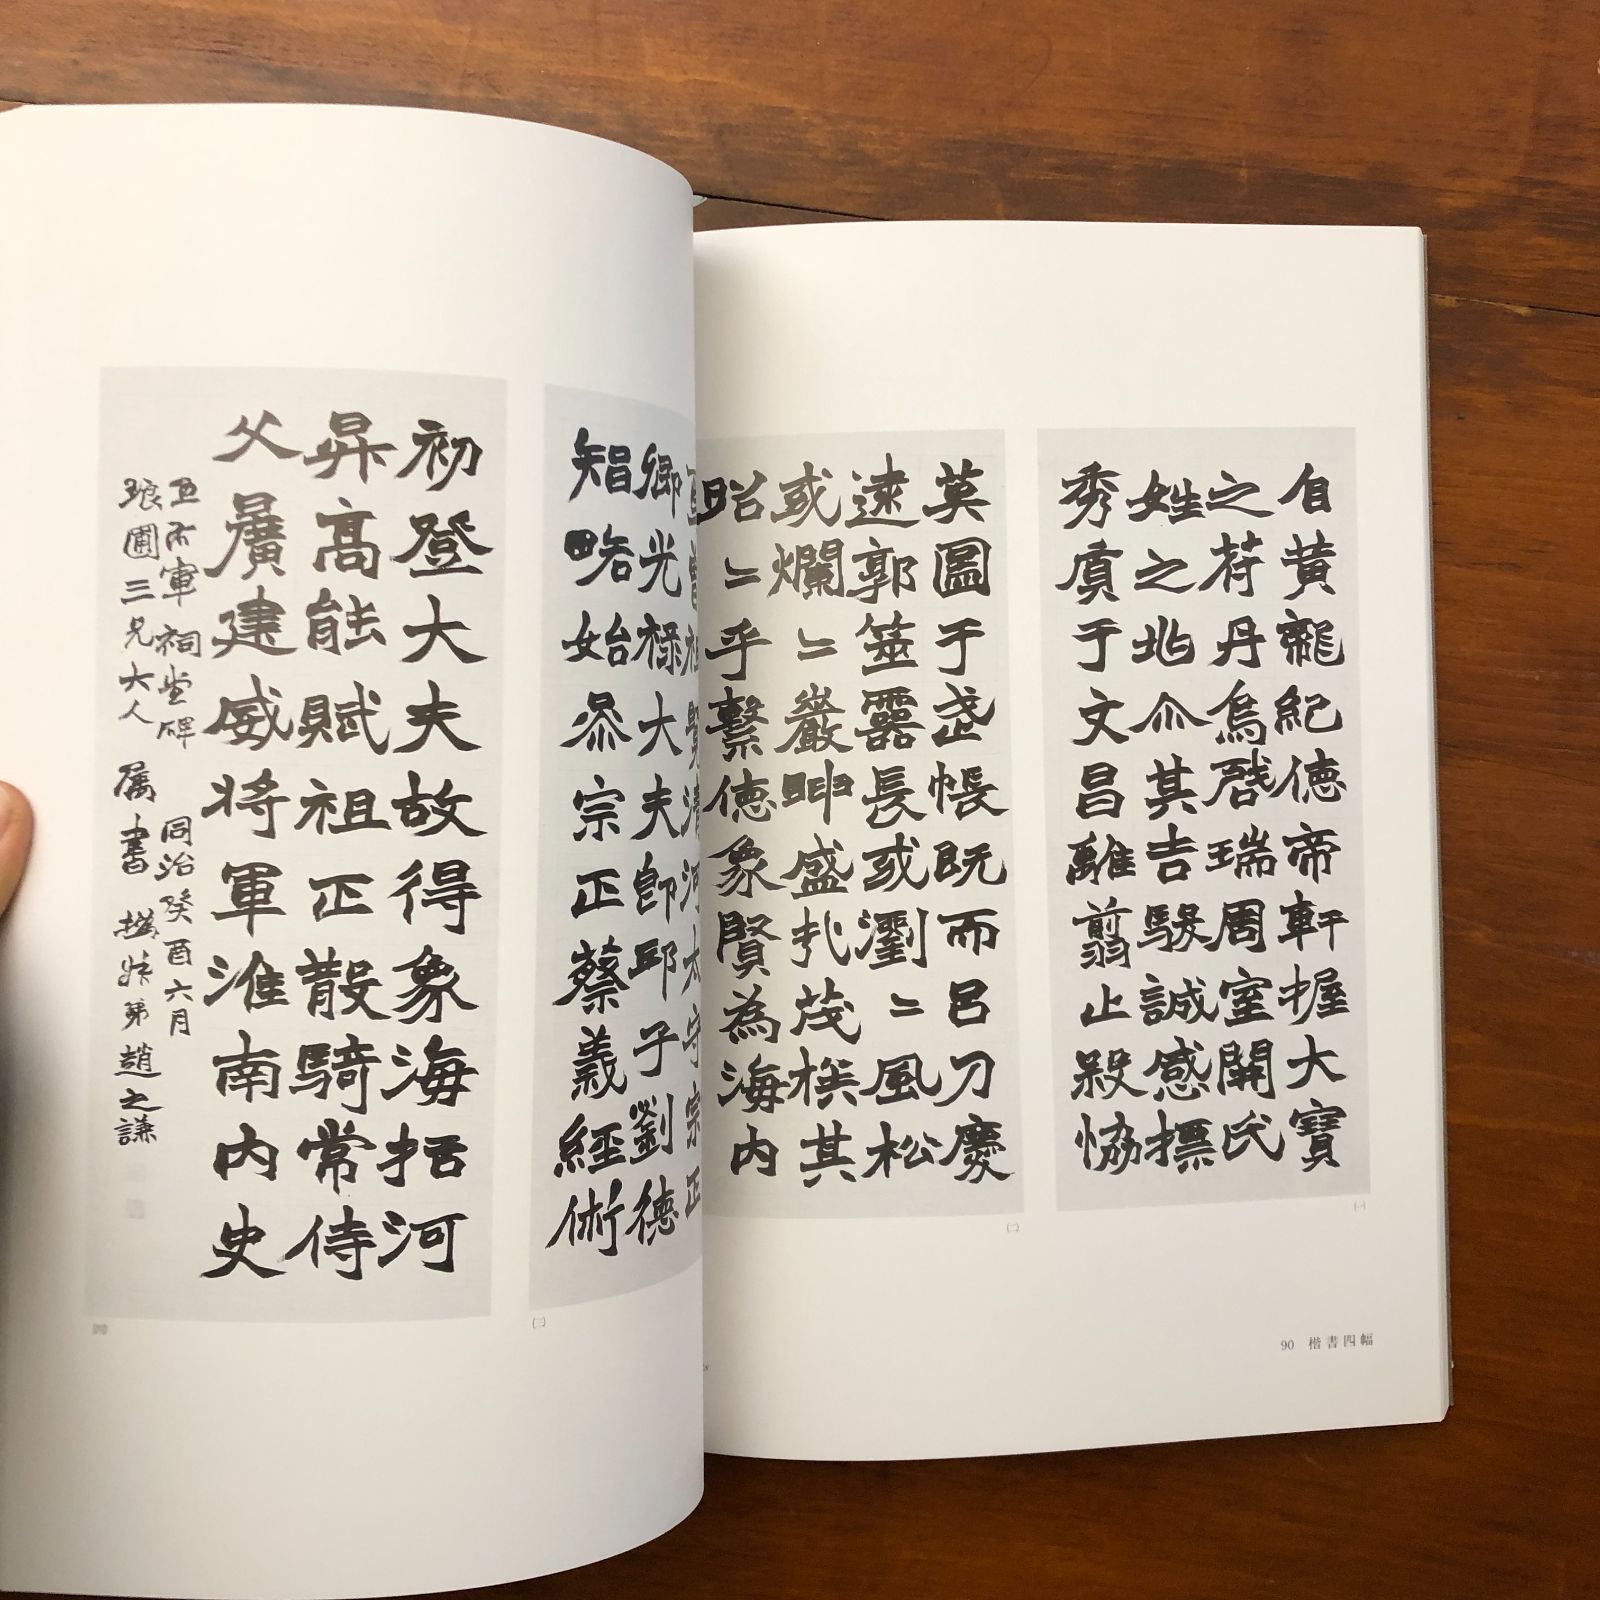 自黃龍紀德帝軒握大寶
之苻丹烏啓瑞周室開氏
姓之北爪其吉騣誠感摽
秀賔于文昌離翦止殺恊
(一)
英圖于武帳既而呂刀慶
遠郭筮器長或瀏〻風松
或爛〻巖申盛扎茂楔其
昭〻乎繫德象賢為海內
(二)
卿光祿大夫郎邱子劉德
智略始恭宗正蔡義經術
(三)
初登大夫故得象海括河
昇高能賦祖正散騎常侍
父廣建威將軍淮南內史
軍祠堂碑 同治癸酉六月
圃三兄大人 屬書 撝叔弟趙之謙
(四)
90 楷書四幅